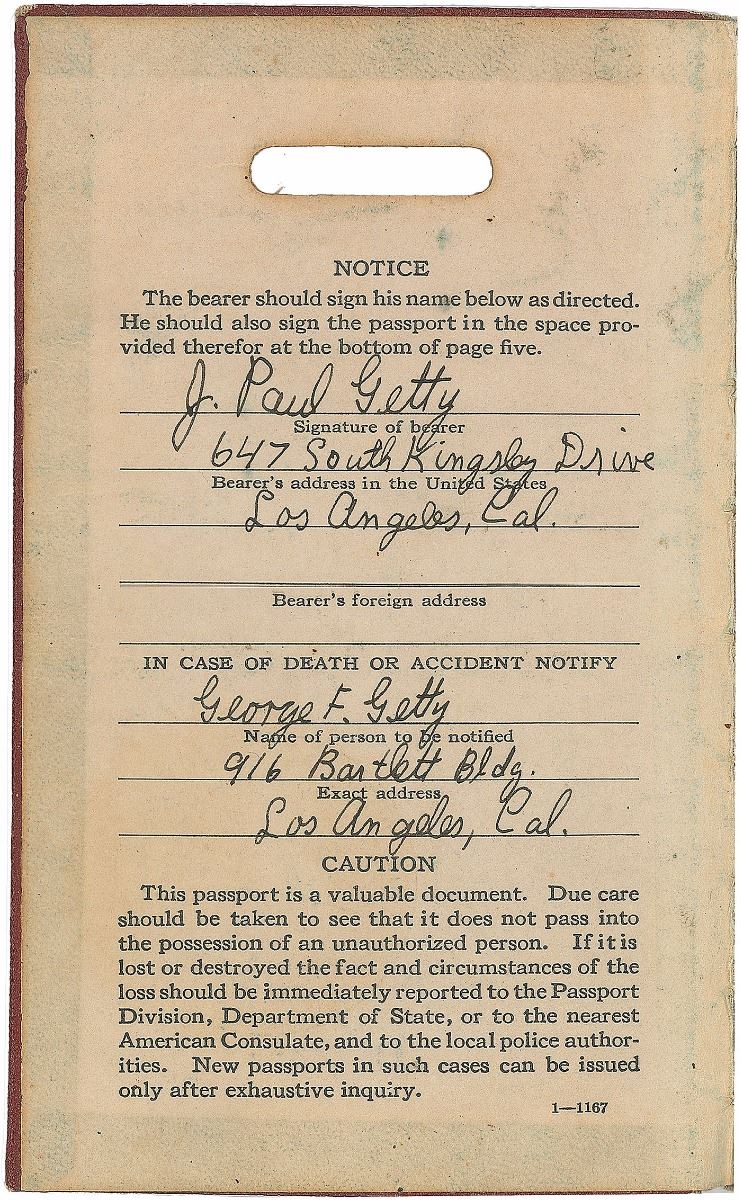 NOTICE
The bearer should sign his name below as directed.
He should also sign the passport in the space pro-
vided therefor at the bottom of page five.
J. Paul Getty
Signature of bearer
647 South Kingsley Drive
Bearer's address in the United States
Los Angeles, Cal.
Bearer's foreign address
IN CASE OF DEATH OR ACCIDENT NOTIFY
George F. Getty
Name of person to be notified
916 Bartlett Bldg.
Exact address
Los Angeles, Cal.
CAUTION
This passport is a valuable document. Due care
should be taken to see that it does not pass into
the possession of an unauthorized person. If it is
lost or destroyed the fact and circumstances of the
loss should be immediately reported to the Passport
Division, Department of State, or to the nearest
American Consulate, and to the local police author-
ities. New passports in such cases can be issued
only after exhaustive inquiry.
1—1167